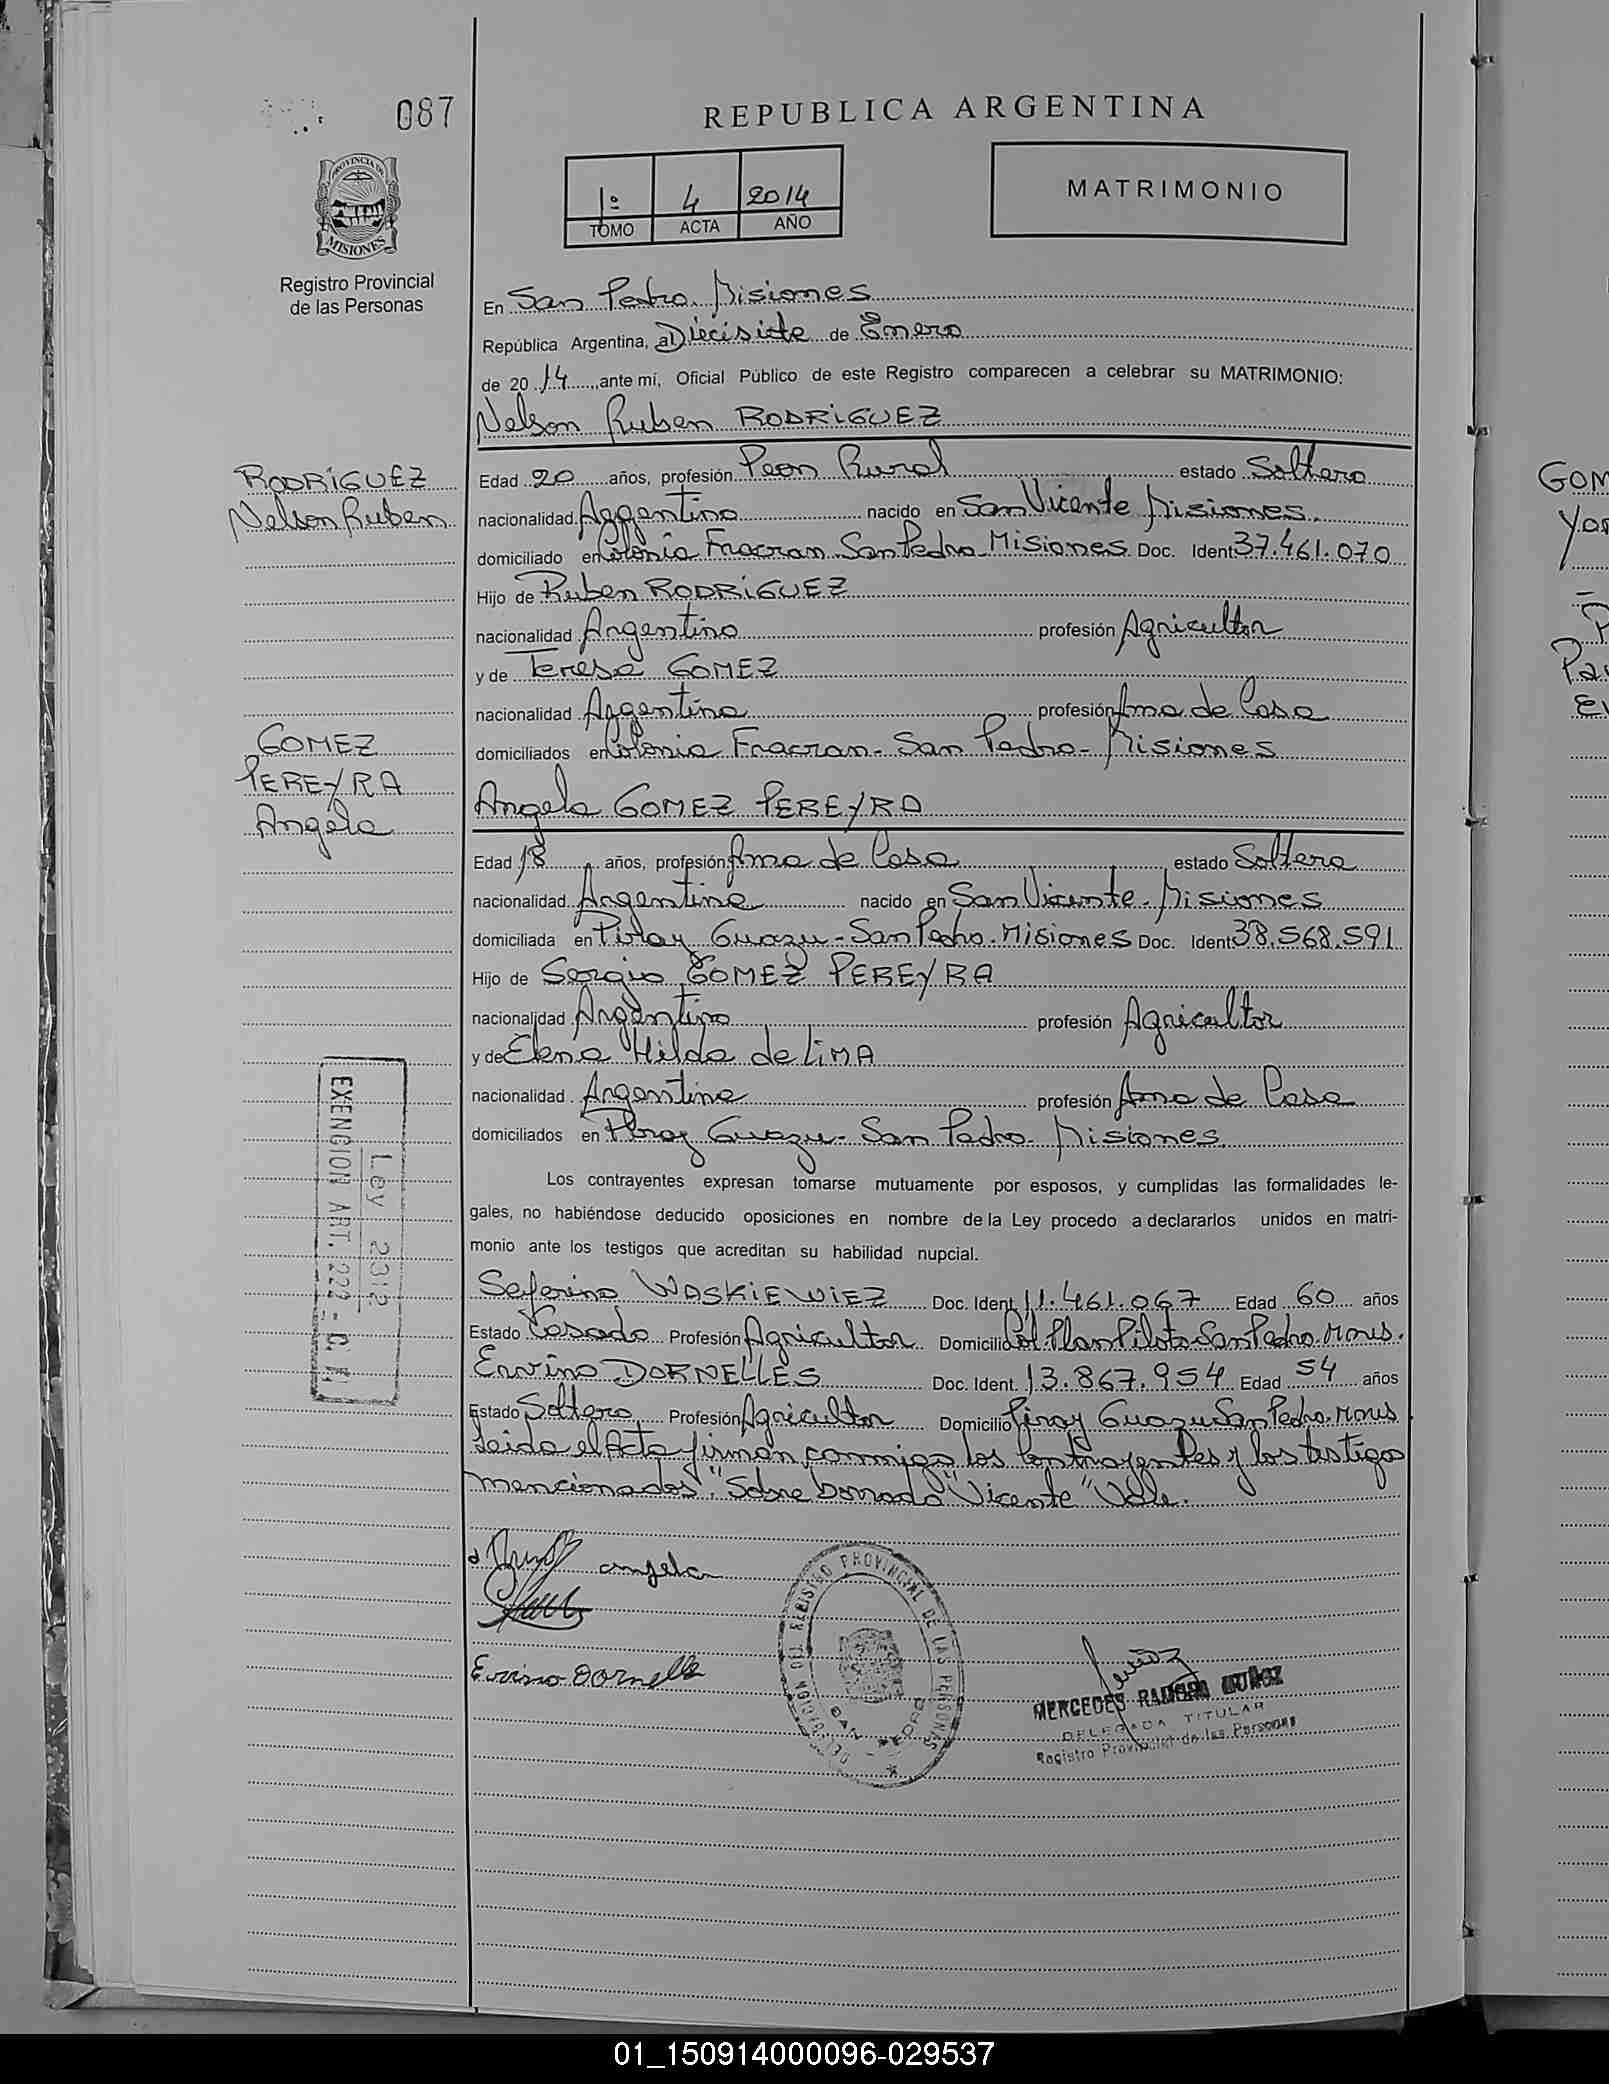 087
REPUBLICA ARGENTINA
1º 4 2014
TOMO ACTA AÑO
MATRIMONIO
PROVINCIA DE
MISIONES
Registro Provincial
de las Personas
En San Pedro. Misiones
República Argentina, al Diecisiete de Enero
de 2014, ante mí, Oficial Público de este Registro comparecen a celebrar su MATRIMONIO:
Nelson Ruben RODRIGUEZ
RODRÍGUEZ
Nelson Ruben
Edad 20 años, profesión Peon Rural estado Soltero
nacionalidad Argentino nacido en San Vicente Misiones.
domiciliado en Colonia Fracran San Pedro - Misiones Doc. Ident 37.461.070
Hijo de Ruben RODRÍGUEZ
nacionalidad Argentino profesión Agricultor
y de Teresa GOMEZ
nacionalidad Argentina profesión Ama de Casa
domiciliados en Colonia Fracran - San Pedro - Misiones
GOMEZ
PEREYRA
Angela
Angela GOMEZ PEREYRA
Edad 18 años, profesión Ama de Casa estado Soltera
nacionalidad Argentina nacido en San Vicente - Misiones
domiciliada en Piray Guazu - San Pedro - Misiones Doc. Ident 38.568.591
Hijo de Sergio GOMEZ PEREYRA
nacionalidad Argentino profesión Agricultor
y de Elena Hilda de LIMA
nacionalidad Argentina profesión Ama de Casa
domiciliados en Piray Guazu - San Pedro - Misiones
Ley 2312
EXENCION ART. 222 - C. P.
Los contrayentes expresan tomarse mutuamente por esposos, y cumplidas las formalidades le-
gales, no habiéndose deducido oposiciones en nombre de la Ley procedo a declararlos unidos en matri-
monio ante los testigos que acreditan su habilidad nupcial.
Seferino WASKIEWIEZ Doc. Ident. 11.461.067 Edad 60 años
Estado Casado Profesión Agricultor Domicilio Col. Plan Piloto San Pedro. Mnes.
Ervino DORNELLES Doc. Ident. 13.867.954 Edad 54 años
Estado Soltero Profesión Agricultor Domicilio Piray Guazu San Pedro. Mnes
Leida el Acta firman conmigo los Contrayentes y los testigos
mencionados". "Sobre borrado" "Vicente" Vale.
angela
Ervino Dornelle
DELEGACION DEL REGISTRO PROVINCIAL DE LAS PERSONAS
SAN PEDRO
MERCEDES RAMONA MUÑOZ
DELEGADA TITULAR
Registro Provincial de las Personas
GOM
01_150914000096-029537